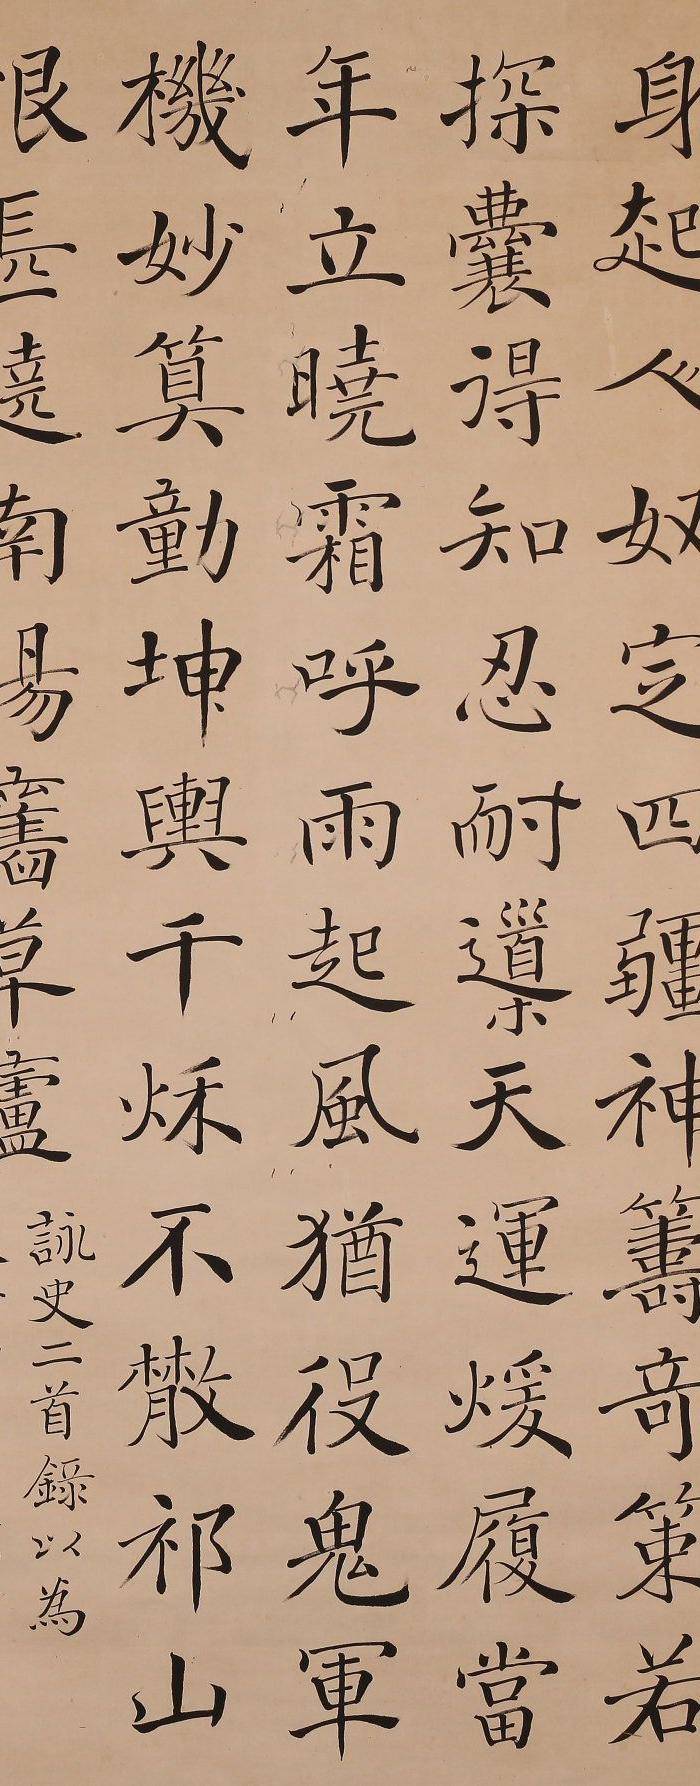 身起人奴定四疆神籌奇策若
探囊得知忍耐導天運煖履當
年立曉霜呼雨起風猶役鬼軍
機妙算動坤輿千秋不散祁山
恨長遶南陽舊草廬
詠史二首錄以為